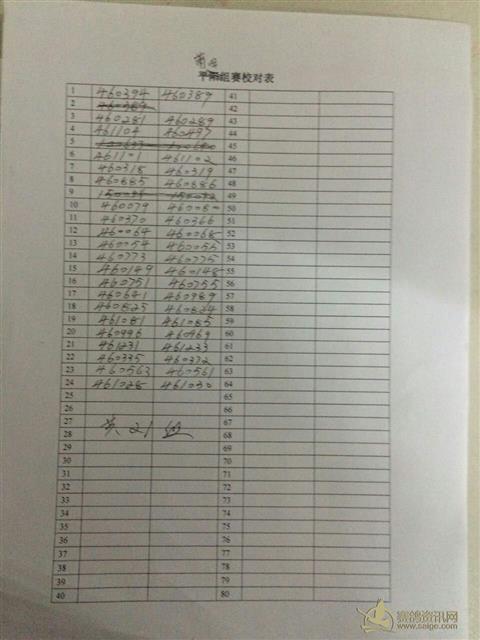 组赛校对表
1 460394 460389 41
2 460389 42
3 460281 460289 43
4 461104 460497 44
5 45
6 461101 461102 46
7 460318 460319 47
8 460885 460886 48
9 49
10 460079 50
11 460370 460366 51
12 460064 460068 52
13 460054 460055 53
14 460773 460775 54
15 460149 460148 55
16 460751 460755 56
17 460641 460989 57
18 460825 460824 58
19 461081 461085 59
20 460996 460969 60
21 461231 461233 61
22 460335 460372 62
23 460563 460561 63
24 461028 461030 64
25 65
26 66
27 67
共21组
28 68
29 69
30 70
31 71
32 72
33 73
34 74
35 75
36 76
37 77
38 78
39 79
40 80
赛鸽资讯网
www.saige.com